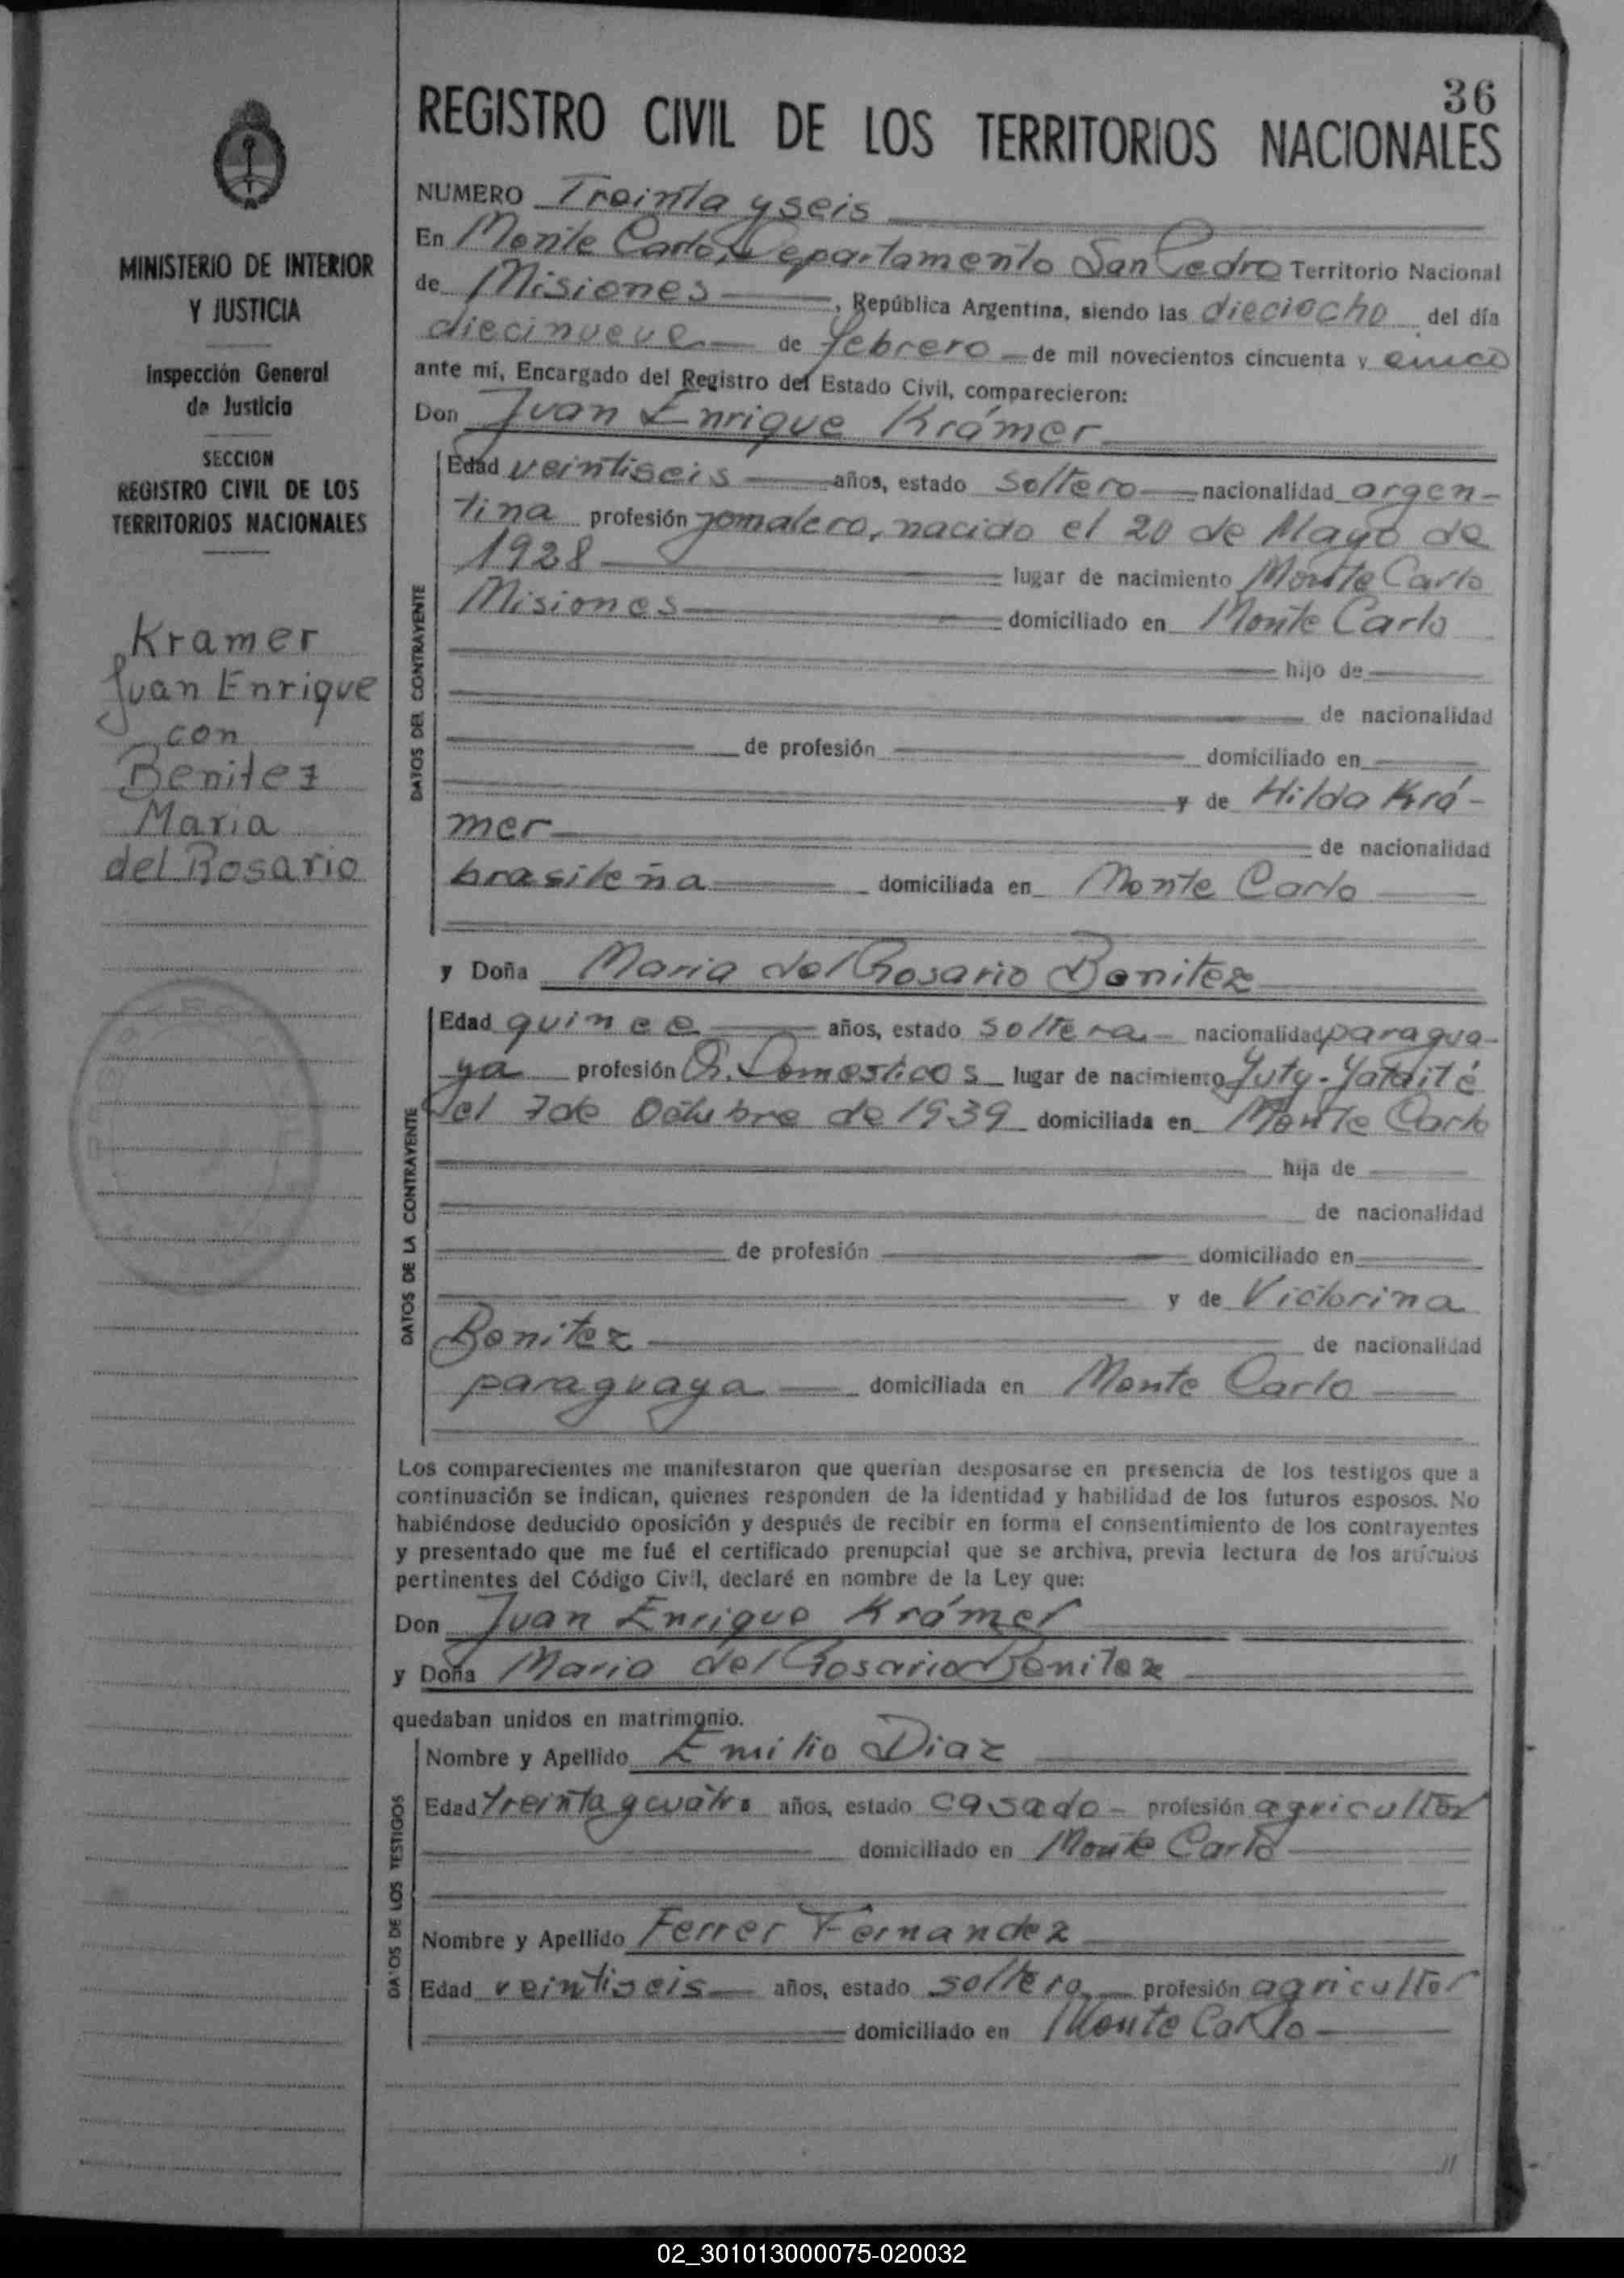 36
REGISTRO CIVIL DE LOS TERRITORIOS NACIONALES
MINISTERIO DE INTERIOR
Y JUSTICIA
Inspección General
de Justicia
SECCION
REGISTRO CIVIL DE LOS
TERRITORIOS NACIONALES
Kramer
Juan Enrique
con
Benitez
Maria
del Rosario
NUMERO Treinta y seis
En Monte Carlo, Departamento San Pedro Territorio Nacional
de Misiones, República Argentina, siendo las dieciocho del día
diecinueve de febrero de mil novecientos cincuenta y cinco
ante mí, Encargado del Registro del Estado Civil, comparecieron:
Don Juan Enrique Krámer
DATOS DEL CONTRAYENTE
Edad veintiseis años, estado soltero nacionalidad argen-
tina profesión jornalero, nacido el 20 de Mayo de
1928 lugar de nacimiento Monte Carlo
Misiones domiciliado en Monte Carlo
hijo de
de nacionalidad
de profesión domiciliado en
y de Hilda Krá-
mer de nacionalidad
brasileña domiciliada en Monte Carlo
y Doña Maria del Rosario Benitez
DATOS DE LA CONTRAYENTE
Edad quince años, estado soltera nacionalidad paragua-
ya profesión Q. Domesticos lugar de nacimiento Yuty-Yataité
el 7 de Octubre de 1939 domiciliada en Monte Carlo
hija de
de nacionalidad
de profesión domiciliado en
y de Victorina
Benitez de nacionalidad
paraguaya domiciliada en Monte Carlo
Los comparecientes me manifestaron que querían desposarse en presencia de los testigos que a
continuación se indican, quienes responden de la identidad y habilidad de los futuros esposos. No
habiéndose deducido oposición y después de recibir en forma el consentimiento de los contrayentes
y presentado que me fué el certificado prenupcial que se archiva, previa lectura de los artículos
pertinentes del Código Civil, declaré en nombre de la Ley que:
Don Juan Enrique Krámer
y Doña Maria del Rosario Benitez
quedaban unidos en matrimonio.
DATOS DE LOS TESTIGOS
Nombre y Apellido Emilio Diaz
Edad treinta y cuatro años, estado casado - profesión agricultor
domiciliado en Monte Carlo
Nombre y Apellido Ferrer Fernandez
Edad veintiseis años, estado soltero profesión agricultor
domiciliado en Monte Carlo
//
02_301013000075-020032